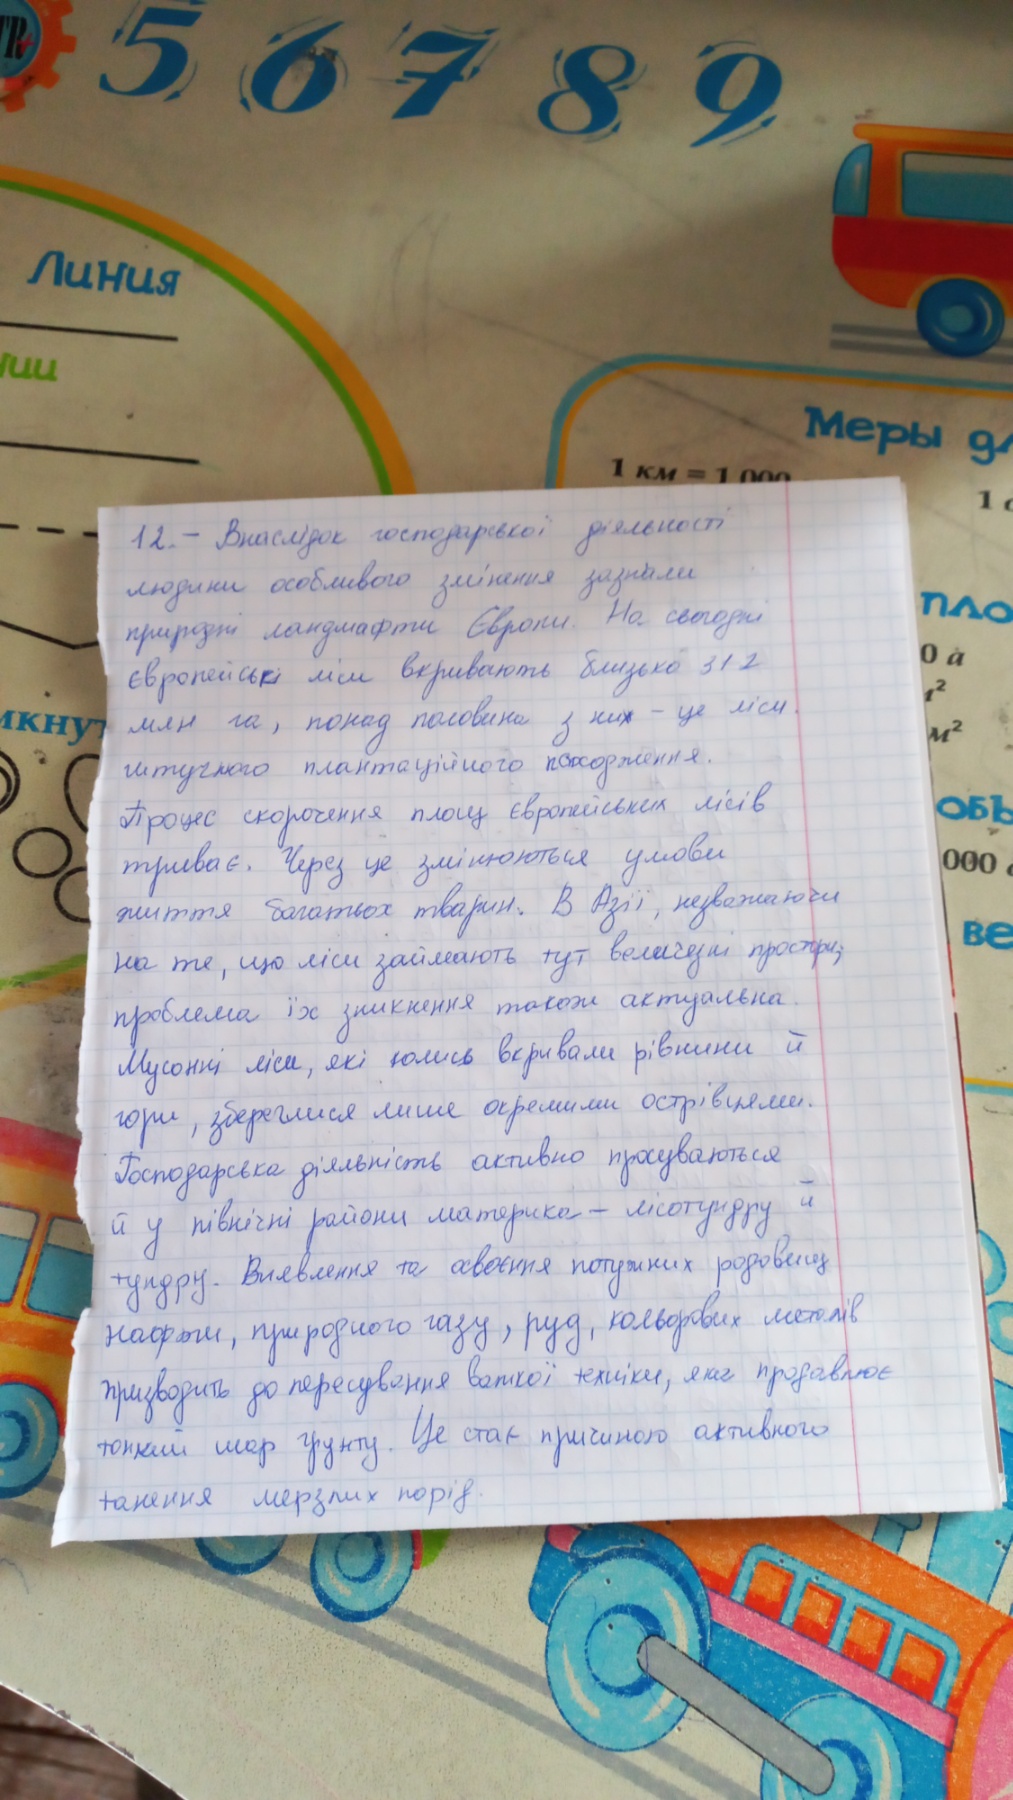 TR
5 6 7 8 9
Линия
нии
Меры дл
1 км = 1 000
1 с
пло
0 а
м²
м²
мкнут
объ
000 с
ве
12. – Внаслідок господарської діяльності
людини особливого змінення зазнали
природні ландшафти Європи. На сьогодні
європейські ліси вкривають близько 312
млн га, понад половина з них – це ліси
штучного плантаційного походження.
Процес скорочення площ європейських лісів
триває. Через це змінюються умови
життя багатьох тварин. В Азії, незважаючи
на те, що ліси займають тут величезні простори,
проблема їх зникнення також актуальна.
Мусонні ліси, які колись вкривали рівнини й
гори, збереглися лише окремими острівцями.
Господарська діяльність активно просуваються
й у північні райони материка – лісотундру й
тундру. Виявлення та освоєння потужних родовищ
нафти, природного газу, руд, кольорових металів
призводить до пересування важкої техніки, яка продавлює
тонкий шар ґрунту. Це стає причиною активного
танення мерзлих порід.